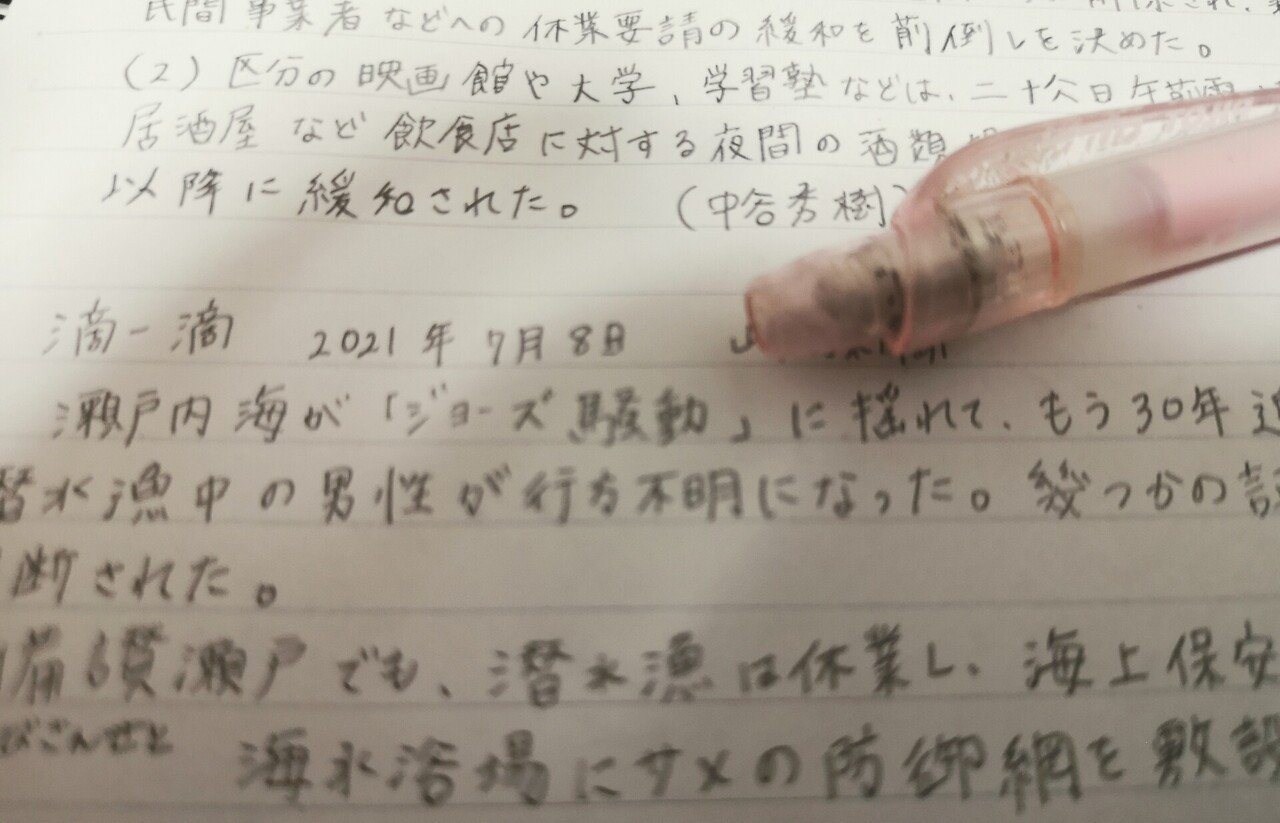 民間事業者などへの休業要請の緩和を前倒しを決めた。
(2)区分の映画館や大学、学習塾などは、二十六日午前零
居酒屋など飲食店に対する夜間の酒類
以降に緩和された。 (中谷秀樹)
滴一滴 2021年7月8日
瀬戸内海が「ジョーズ騒動」に揺れて、もう30年近
潜水漁中の男性が行方不明になった。幾つかの
断された。
備讃瀬戸でも、潜水漁は休業し、海上保安
びさんせと
海水浴場にサメの防御網を敷設